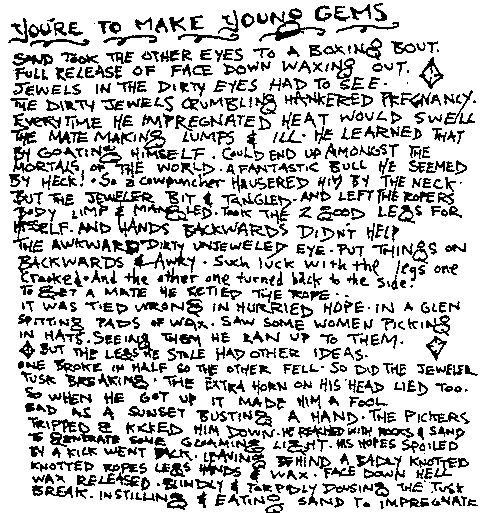 YOU'RE TO MAKE YOUNG GEMS
SAND TOOK THE OTHER EYES TO A BOXING BOUT.
FULL RELEASE OF FACE DOWN WAXING OUT.
JEWELS IN THE DIRTY EYES HAD TO SEE.
THE DIRTY JEWELS CRUMBLING HANKERED PREGNANCY.
EVERYTIME HE IMPREGNATED HEAT WOULD SWELL
THE MATE MAKING LUMPS & ILL. HE LEARNED THAT
BY GOATING HIMSELF. COULD END UP AMONGST THE
MORTALS, OF THE WORLD. A FANTASTIC BULL HE SEEMED
BY HECK! SO A COWPUNCHER HAUSERED HIM BY THE NECK.
BUT THE JEWELER BIT & TANGLED. AND LEFT THE ROPERS
BODY LIMP & MANGLED. TOOK THE 2 GOOD LEGS FOR
ITSELF. AND HANDS BACKWARDS DIDN'T HELP
THE AWKWARD DIRTY UNJEWELED EYE. PUT THINGS ON
BACKWARDS & AWRY. Such luck with the legs one
Crooked. And the other one turned back to the side.
TO GET A MATE HE RETIED THE ROPE.
IT WAS TIED WRONG IN HURRIED HOPE. IN A GLEN
SPITTING PADS OF WAX. SAW SOME WOMEN PICKING
IN HATS. SEEING THEM HE RAN UP TO THEM.
BUT THE LEGS HE STOLE HAD OTHER IDEAS.
ONE BROKE IN HALF SO THE OTHER FELL. SO DID THE JEWELER
TUSK BREAKING. THE EXTRA HORN ON HIS HEAD LIED TOO.
SO WHEN HE GOT UP IT MADE HIM A FOOL
BAD AS A SUNSET BUSTING A HAND. THE PICKERS
TRIPPED & KICKED HIM DOWN. HE REACHED WITH ROCKS & SAND
TO GENERATE SOME GLOAMING LIGHT. HIS HOPES SPOILED
BY A KICK WENT BACK. LEAVING BEHIND A BADLY KNOTTED
KNOTTED ROPES LEGS HANDS & WAX. FACE DOWN HELL
WAX RELEASED. BLINDLY & TORPEDLY DOUSING THE TUSK
BREAK. INSTILLING & EATING SAND TO IMPREGNATE